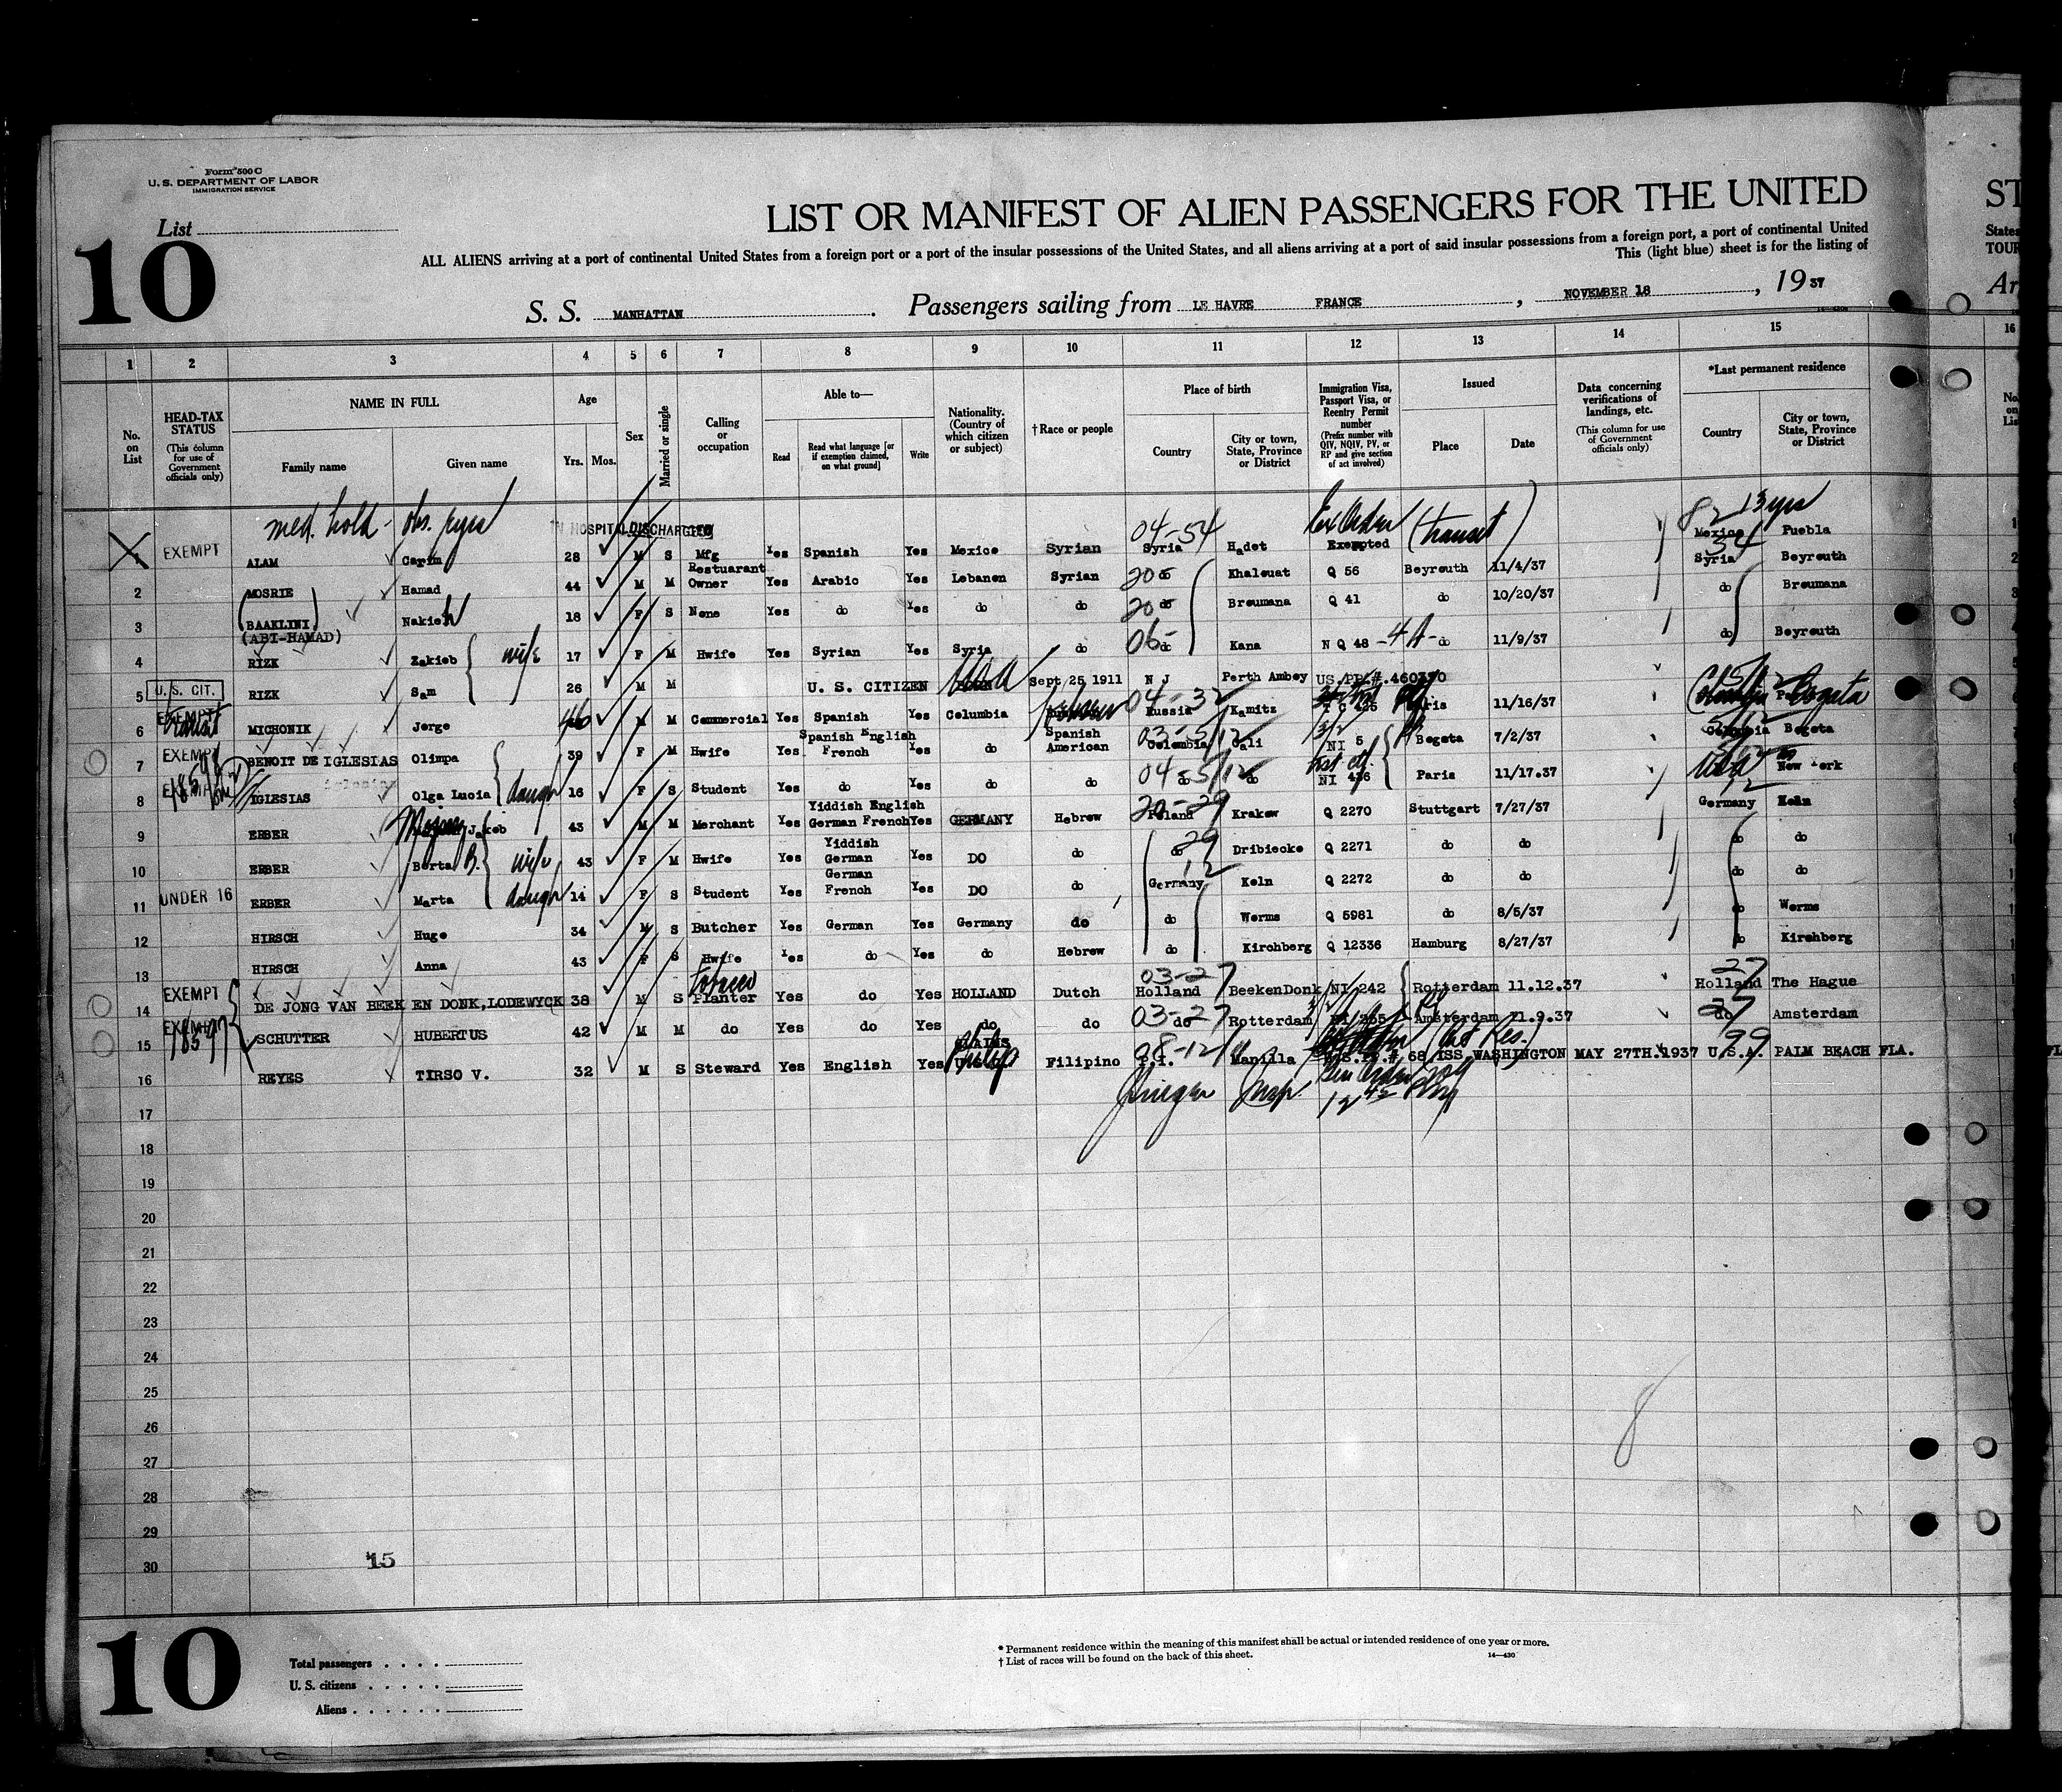 Form 500 C
U. S. DEPARTMENT OF LABOR
IMMIGRATION SERVICE
List
10
LIST OR MANIFEST OF ALIEN PASSENGERS FOR THE UNITED
ST
ALL ALIENS arriving at a port of continental United States from a foreign port or a port of the insular possessions of the United States, and all aliens arriving at a port of said insular possessions from a foreign port, a port of continental United
States
This (light blue) sheet is for the listing of
TOUR
S. S. MANHATTAN. Passengers sailing from LE HAVRE FRANCE, NOVEMBER 18, 1937
Ar
1 2 3 4 5 6 7 8 9 10 11 12 13 14 15 16
No. on List
HEAD-TAX STATUS
(This column for use of Government officials only)
NAME IN FULL
Family name Given name
Age
Yrs. Mos.
Sex
Married or single
Calling or occupation
Able to—
Read
Read what language [or if exemption claimed, on what ground]
Write
Nationality. (Country of which citizen or subject)
†Race or people
Place of birth
Country
City or town, State, Province or District
Immigration Visa, Passport Visa, or Reentry Permit number
(Prefix number with QIV, NQIV, PV, or RP and give section of act involved)
Issued
Place Date
Data concerning verifications of landings, etc.
(This column for use of Government officials only)
*Last permanent residence
Country
City or town, State, Province or District
med. hold - obs. eyes IN HOSPITAL DISCHARGED 04-54 Ex Order (transit) 82 13 yrs
EXEMPT ALAM Carim 28 M S Mfg Yes Spanish Yes Mexico Syrian Syria Hadet Exempted Mexico Puebla
2 MOSRIE Hamad 44 M M Restuarant Owner Yes Arabic Yes Lebanon Syrian do Khalouat Q 56 Beyrouth 11/4/37 Syria Beyrouth
3 (BAAKLINI) (ABI-HAMAD) Nakieh 18 F S None Yes do Yes do do do Broumana Q 41 do 10/20/37 do Broumana
4 RIZK Zakieb wife 17 F M Hwife Yes Syrian Yes Syria do 06- do Kana N Q 48 -4A- do 11/9/37 do Beyrouth
5 U. S. CIT. RIZK Sam 26 M M U. S. CITIZEN USA Sept 25 1911 N J Perth Amboy US.PP.#.460370
6 EXEMPT Transit MICHONIK Jorge 46 M M Commercial Yes Spanish Yes Columbia Hebrew 04-32 Russia Kamitz Paris 11/16/37 Colombia Bogota
7 EXEMPT BENOIT DE IGLESIAS Olimpa 39 F M Hwife Yes Spanish English French Yes do Spanish American 03-5/12 Colombia Cali NI 5 Bogota 7/2/37 Columbia Bogota
8 EXEMPT IGLESIAS Olga Lucia daugr 16 F S Student Yes do Yes do do 04-5/12 do do NI 416 Paris 11/17.37 USA New York
9 ERBER Jakob 43 M M Merchant Yes Yiddish English German French Yes GERMANY Hebrew 20-29 Poland Krakow Q 2270 Stuttgart 7/27/37 Germany Koln
10 ERBER Berta B. wife 43 F M Hwife Yes Yiddish German Yes DO do do Dribiecko Q 2271 do do do do
11 UNDER 16 ERBER Marta daugr 14 F S Student Yes German French Yes DO do Germany Koln Q 2272 do do do do
12 HIRSCH Hugo 34 M S Butcher Yes German Yes Germany do do Worms Q 5981 do 8/5/37 do Worms
13 HIRSCH Anna 43 F S Hwife Yes do Yes do Hebrew do Kirchberg Q 12336 Hamburg 8/27/37 do Kirchberg
14 EXEMPT DE JONG VAN BEEK EN DONK, LODEWYCK 38 M S Tobacco Planter Yes do Yes HOLLAND Dutch 03-27 Holland BeekenDonk NI 242 Rotterdam 11.12.37 27 Holland The Hague
15 EXEMPT SCHUTTER HUBERTUS 42 M M do Yes do Yes do do 03-27 do Rotterdam Amsterdam 11.9.37 27 do Amsterdam
16 REYES TIRSO V. 32 M S Steward Yes English Yes Filipino 08-12 P.I. Manilla 68 ISS WASHINGTON MAY 27TH.1937 U.S.A. 99 PALM BEACH FLA.
Insp.
17
18
19
20
21
22
23
24
25
26
27
28
29
30
15
8
10
Total passengers
U. S. citizens
Aliens
* Permanent residence within the meaning of this manifest shall be actual or intended residence of one year or more.
† List of races will be found on the back of this sheet.
14—430